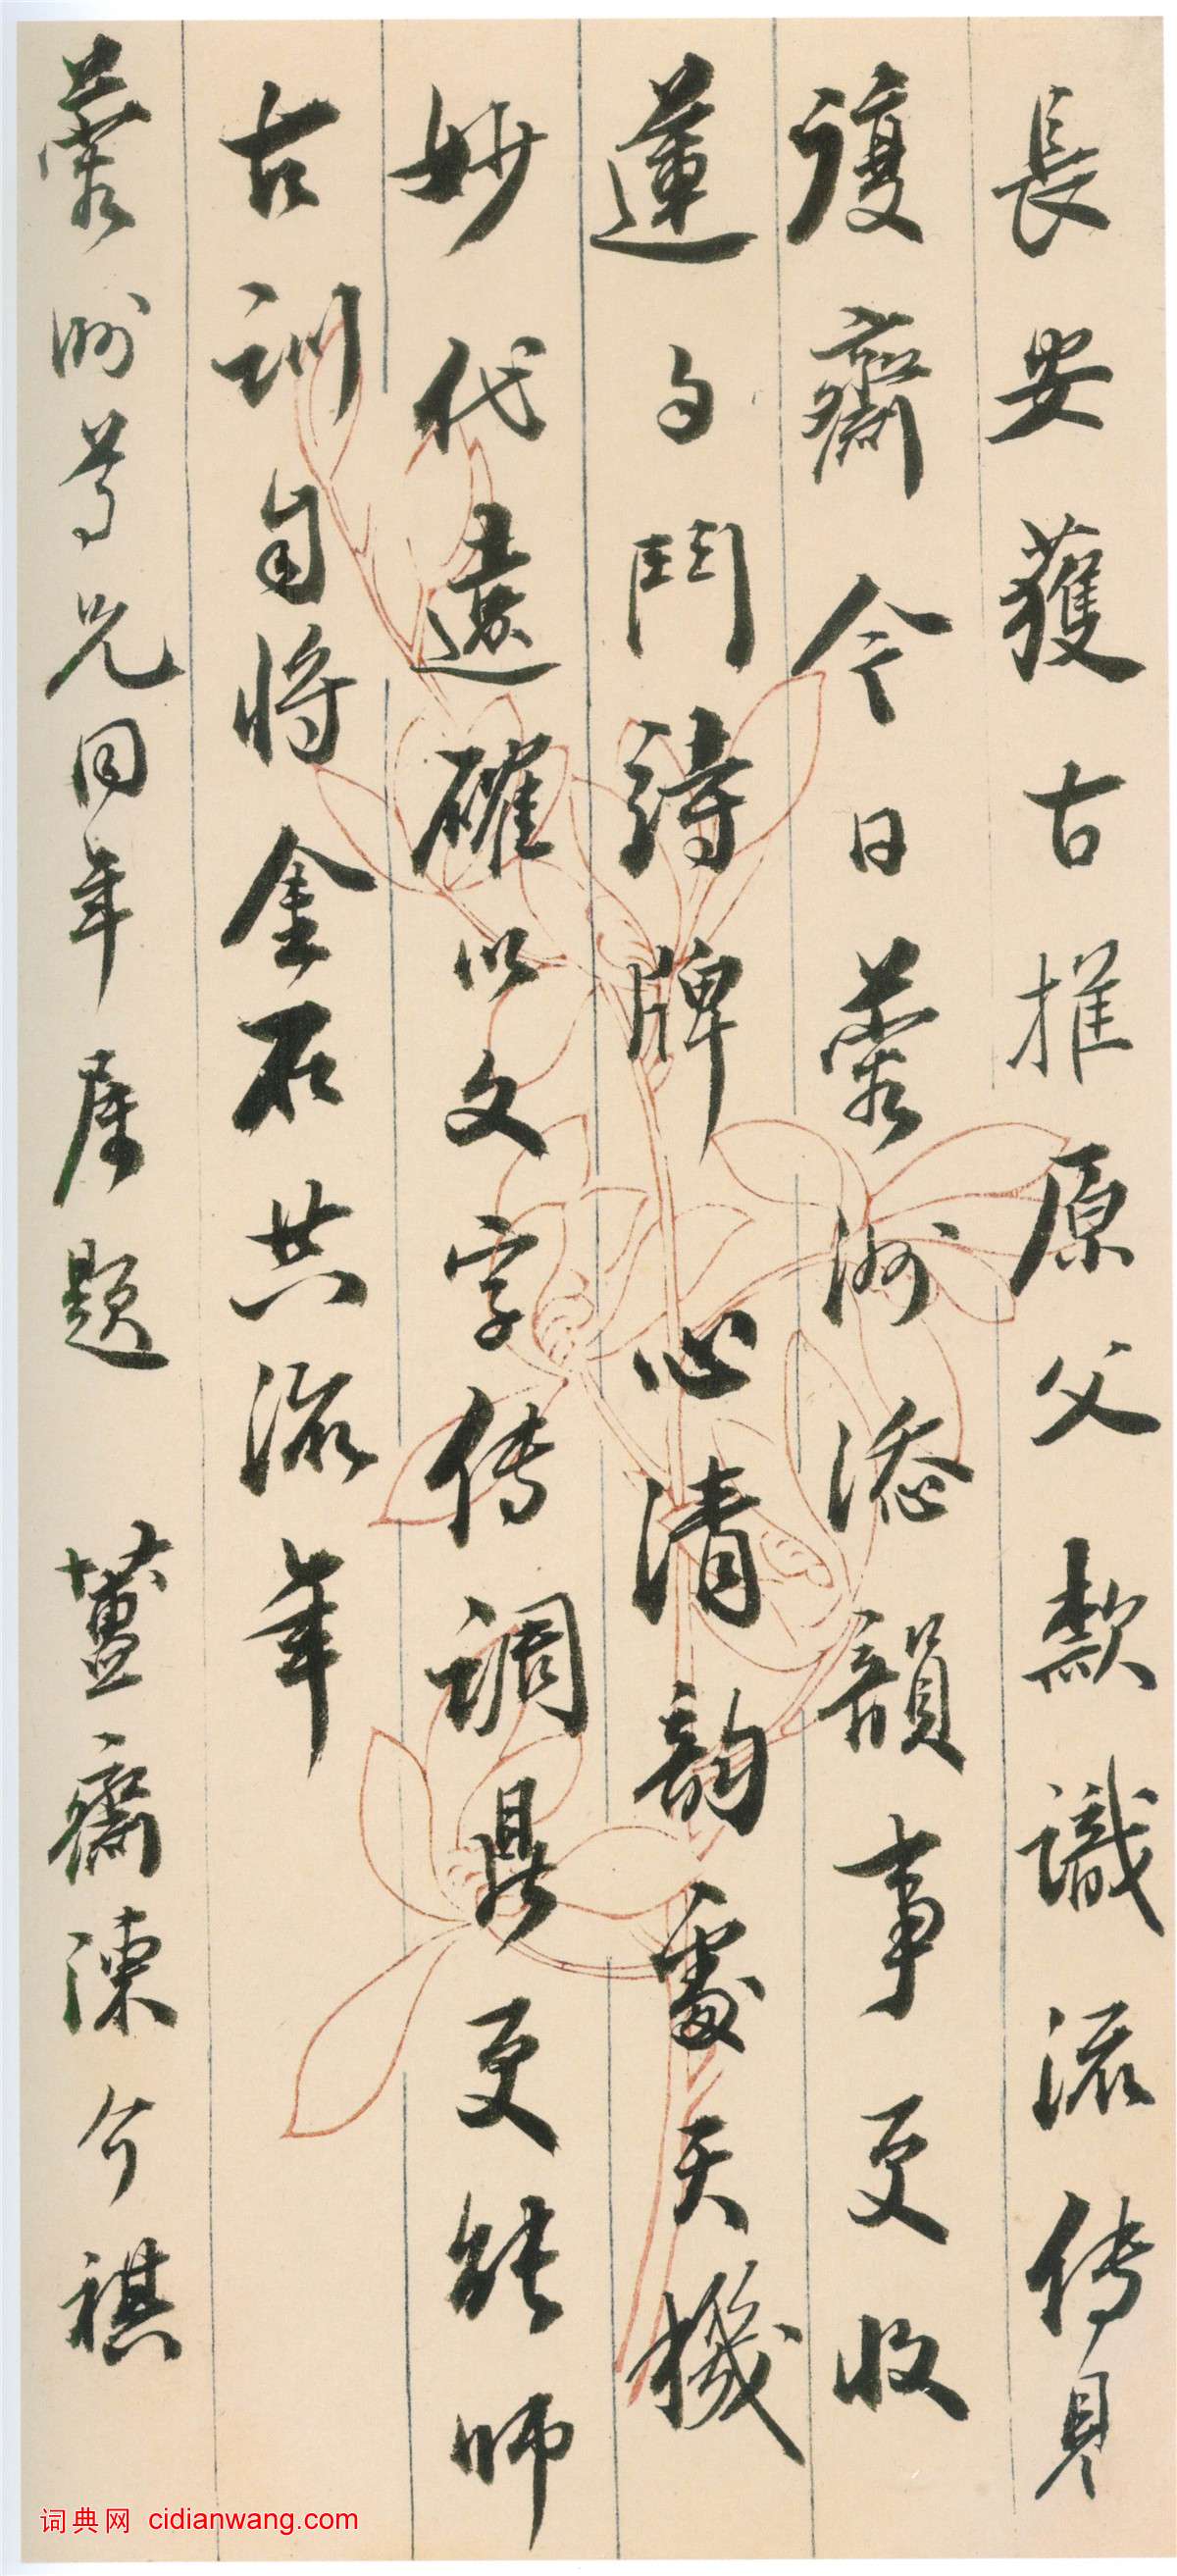 長安獲古推原父款識流传見
護齋今日蓉洲添韻事更收
蓮勺鬥詩牌心清韵處天機
妙代遠確以文字传調鼎更能師
古訓肯將金石共流年
蓉洲尊兄同年屬題 簠齋陳介祺
词典网 cidianwang.com